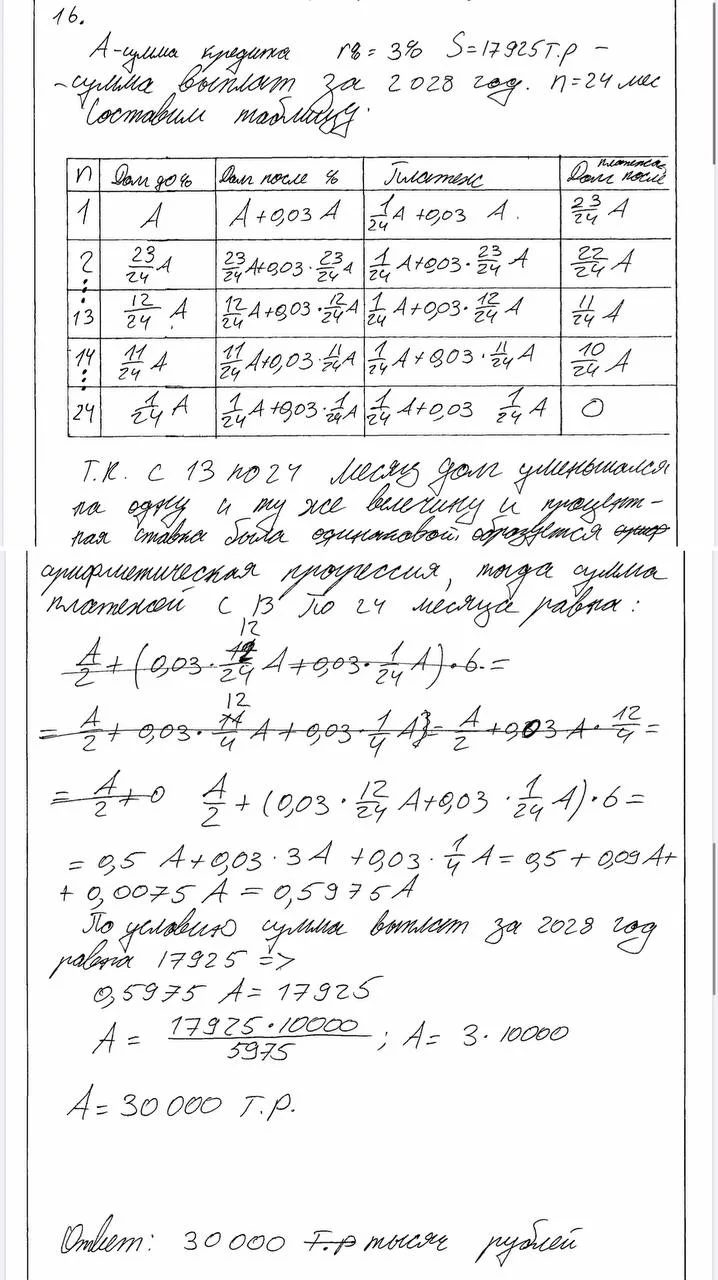 16.
A-сумма кредита r% = 3% S=17925Т.Р -
- сумма выплат за 2028 год. n=24 мес
Составим таблицу.
n Долг до % Долг после % Платеж Долг после платежа
1 A A+0,03 A 1/24 A +0,03 A. 23/24 A
2 23/24 A 23/24 A+0,03·23/24 A 1/24 A+0,03·23/24 A 22/24 A
⋮
13 12/24 A 12/24 A+0,03·12/24 A 1/24 A+0,03·12/24 A 11/24 A
14 11/24 A 11/24 A+0,03·11/24 A 1/24 A+0,03·11/24 A 10/24 A
⋮
24 1/24 A 1/24 A+0,03·1/24 A 1/24 A+0,03 1/24 A 0
Т.к. с 13 по 24 месяц долг уменьшался
на одну и ту же величину и процент-
ная ставка была одинаковой, образуется ариф
арифметическая прогрессия, тогда сумма
платежей с 13 по 24 месяца равна:
A/2 + (0,03·12/24 A+0,03·1/24 A)·6 =
= A/2 + 0,03·12/4 A + 0,03·1/4 A = A/2 + 0,03 A·12/4 =
= A/2 + 0 A/2 + (0,03·12/24 A+0,03·1/24 A)·6 =
= 0,5 A+0,03·3A +0,03·1/4 A = 0,5 + 0,09A+
+ 0,0075 A = 0,5975A
По условию сумма выплат за 2028 год
равна 17925 =>
0,5975 A = 17925
A = 17925·10000/5975 ; A = 3·10000
A = 30 000 Т.Р.
Ответ: 30 000 Т.Р тысяч рублей